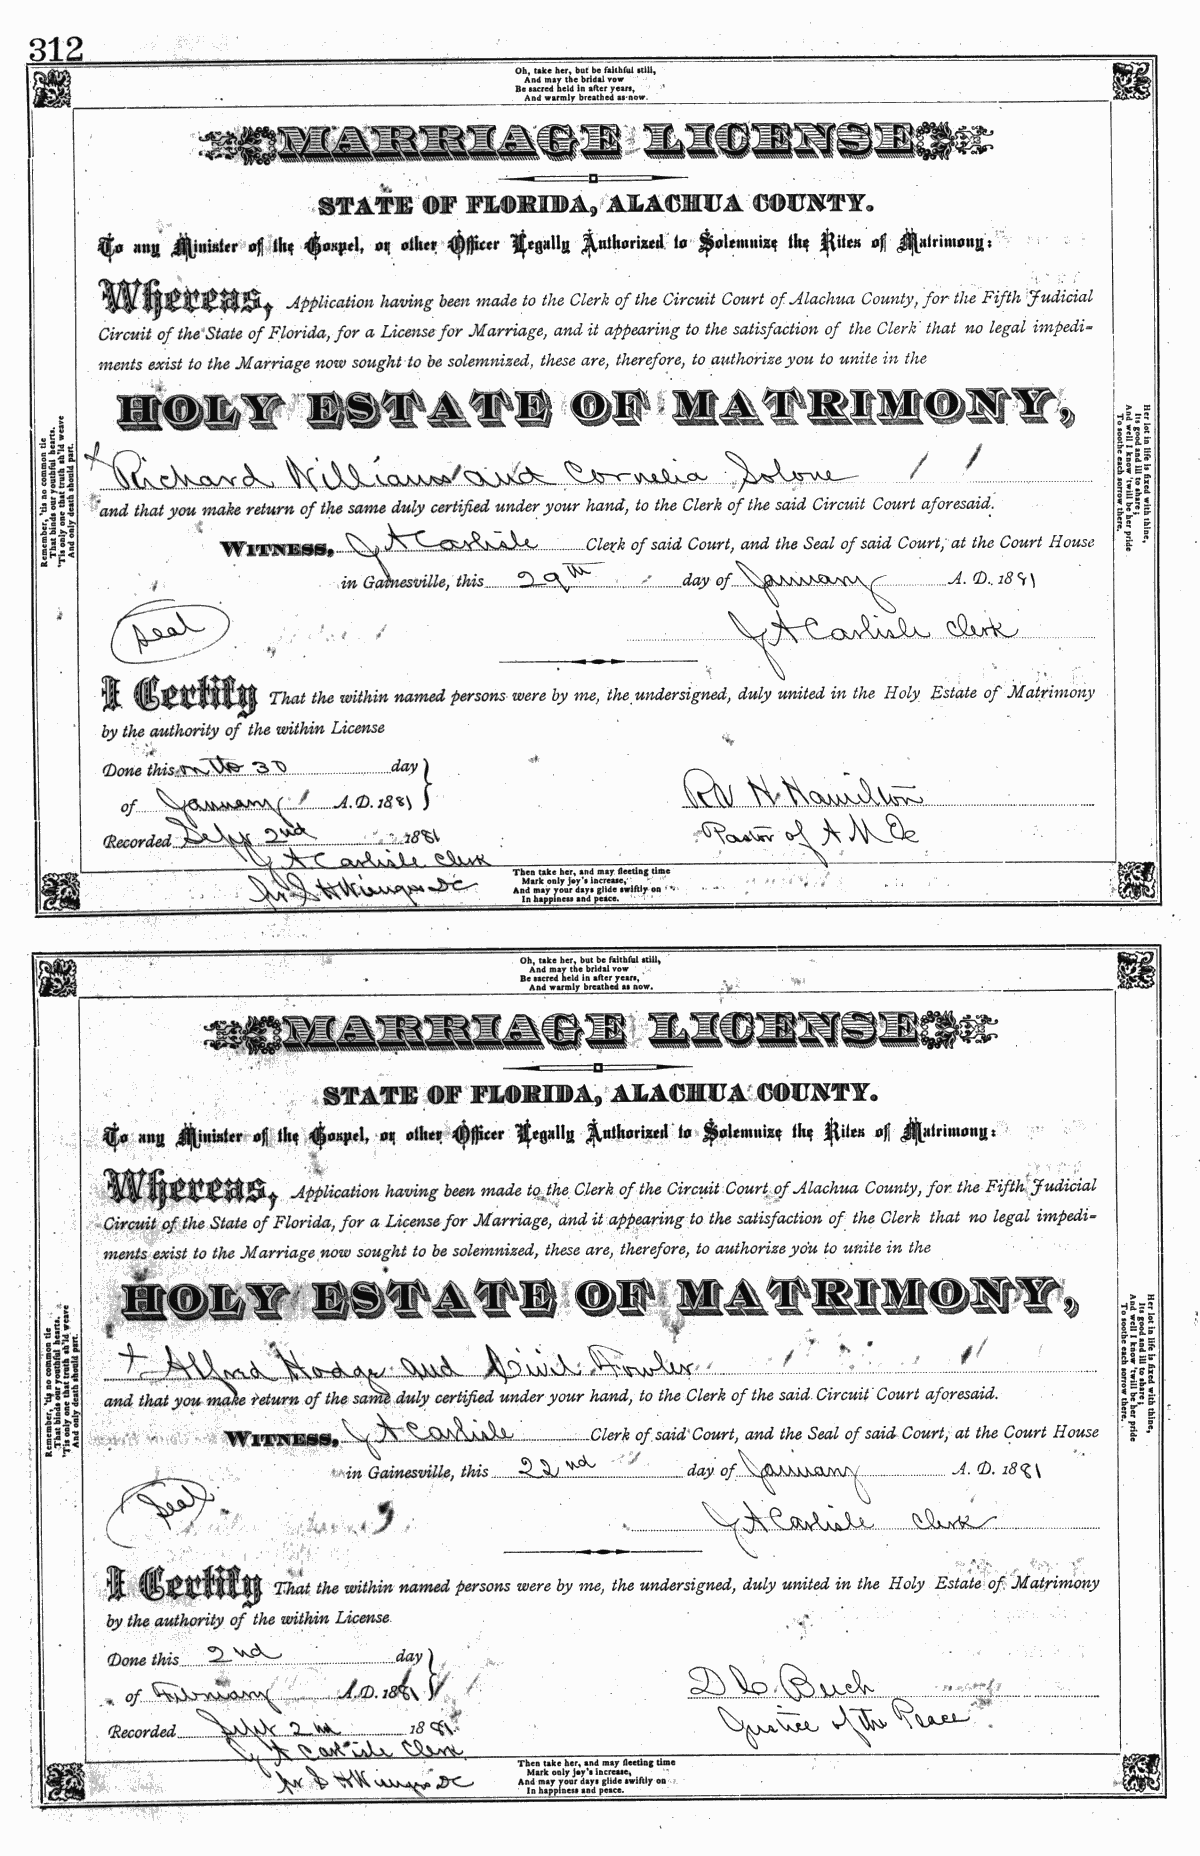 312
Oh, take her, but be faithful still,
And may the bridal vow
Be sacred held in after years,
And warmly breathed as now.
MARRIAGE LICENSE
STATE OF FLORIDA, ALACHUA COUNTY.
To any Minister of the Gospel, or other Officer Legally Authorized to Solemnize the Rites of Matrimony:
Whereas, Application having been made to the Clerk of the Circuit Court of Alachua County, for the Fifth Judicial
Circuit of the State of Florida, for a License for Marriage, and it appearing to the satisfaction of the Clerk that no legal impedi-
ments exist to the Marriage now sought to be solemnized, these are, therefore, to authorize you to unite in the
HOLY ESTATE OF MATRIMONY,
Richard Williams and Cornelia Solone
and that you make return of the same duly certified under your hand, to the Clerk of the said Circuit Court aforesaid.
WITNESS, J A Carlisle Clerk of said Court, and the Seal of said Court, at the Court House
in Gainesville, this 29th day of January A. D. 1881
J A Carlisle Clerk
Seal
I Certify That the within named persons were by me, the undersigned, duly united in the Holy Estate of Matrimony
by the authority of the within License
Done this on the 30 day
of January A. D. 1881
Rev H Hamilton
Pastor of A M E
Recorded Sept 2nd 1881
J A Carlisle Clerk
pr S H Wienges DC
Remember, 'tis no common tie
That binds our youthful hearts,
'Tis only one that truth sh'ld weave
And only death should part.
Her lot in life is fixed with thine,
Its good and ill to share;
And well I know 'twill be her pride
To soothe each sorrow there.
Then take her, and may fleeting time
Mark only joy's increase,
And may your days glide swiftly on
In happiness and peace.
Oh, take her, but be faithful still,
And may the bridal vow
Be sacred held in after years,
And warmly breathed as now.
MARRIAGE LICENSE
STATE OF FLORIDA, ALACHUA COUNTY.
To any Minister of the Gospel, or other Officer Legally Authorized to Solemnize the Rites of Matrimony:
Whereas, Application having been made to the Clerk of the Circuit Court of Alachua County, for the Fifth Judicial
Circuit of the State of Florida, for a License for Marriage, and it appearing to the satisfaction of the Clerk that no legal impedi-
ments exist to the Marriage now sought to be solemnized, these are, therefore, to authorize you to unite in the
HOLY ESTATE OF MATRIMONY,
Alfred Hodge and Civil Fowler
and that you make return of the same duly certified under your hand, to the Clerk of the said Circuit Court aforesaid.
WITNESS, J A Carlisle Clerk of said Court, and the Seal of said Court, at the Court House
in Gainesville, this 22nd day of January A. D. 1881
J A Carlisle Clerk
Seal
I Certify That the within named persons were by me, the undersigned, duly united in the Holy Estate of Matrimony
by the authority of the within License
Done this 2nd day
of February A. D. 1881
Justice of the Peace
Recorded Sept 2nd 1881
J A Carlisle Clerk
pr S H Wienges DC
Remember, 'tis no common tie
That binds our youthful hearts,
'Tis only one that truth sh'ld weave
And only death should part.
Her lot in life is fixed with thine,
Its good and ill to share;
And well I know 'twill be her pride
To soothe each sorrow there.
Then take her, and may fleeting time
Mark only joy's increase,
And may your days glide swiftly on
In happiness and peace.